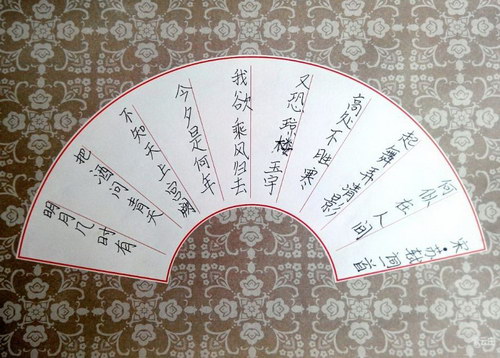 明月几时有
把酒问青天
不知天上宫阙
今夕是何年
我欲乘风归去
又恐琼楼玉宇
高处不胜寒
起舞弄清影
何似在人间
宋·苏轼词一首